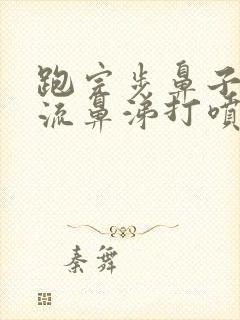 跑完步鼻子
流鼻涕打喷
秦舞